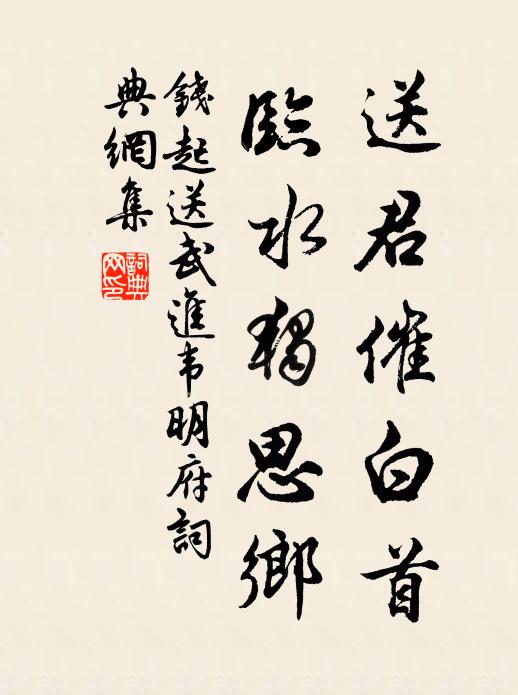 送君催白首
臨水獨思鄉
錢起送武進韦明府詞
典網集
詞典
网印